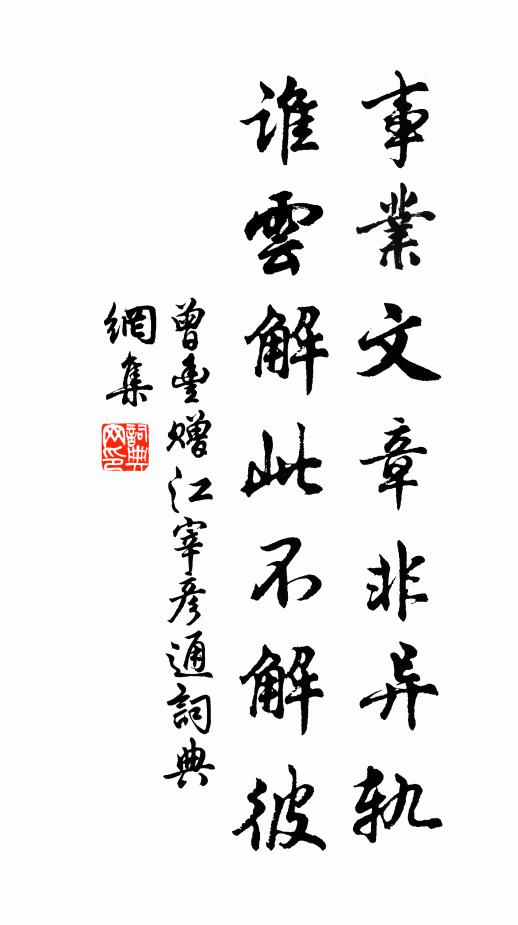 事業文章非异軌
誰雲解此不解彼
曾豐贈江宰彥通詞典
網集
詞典
网印